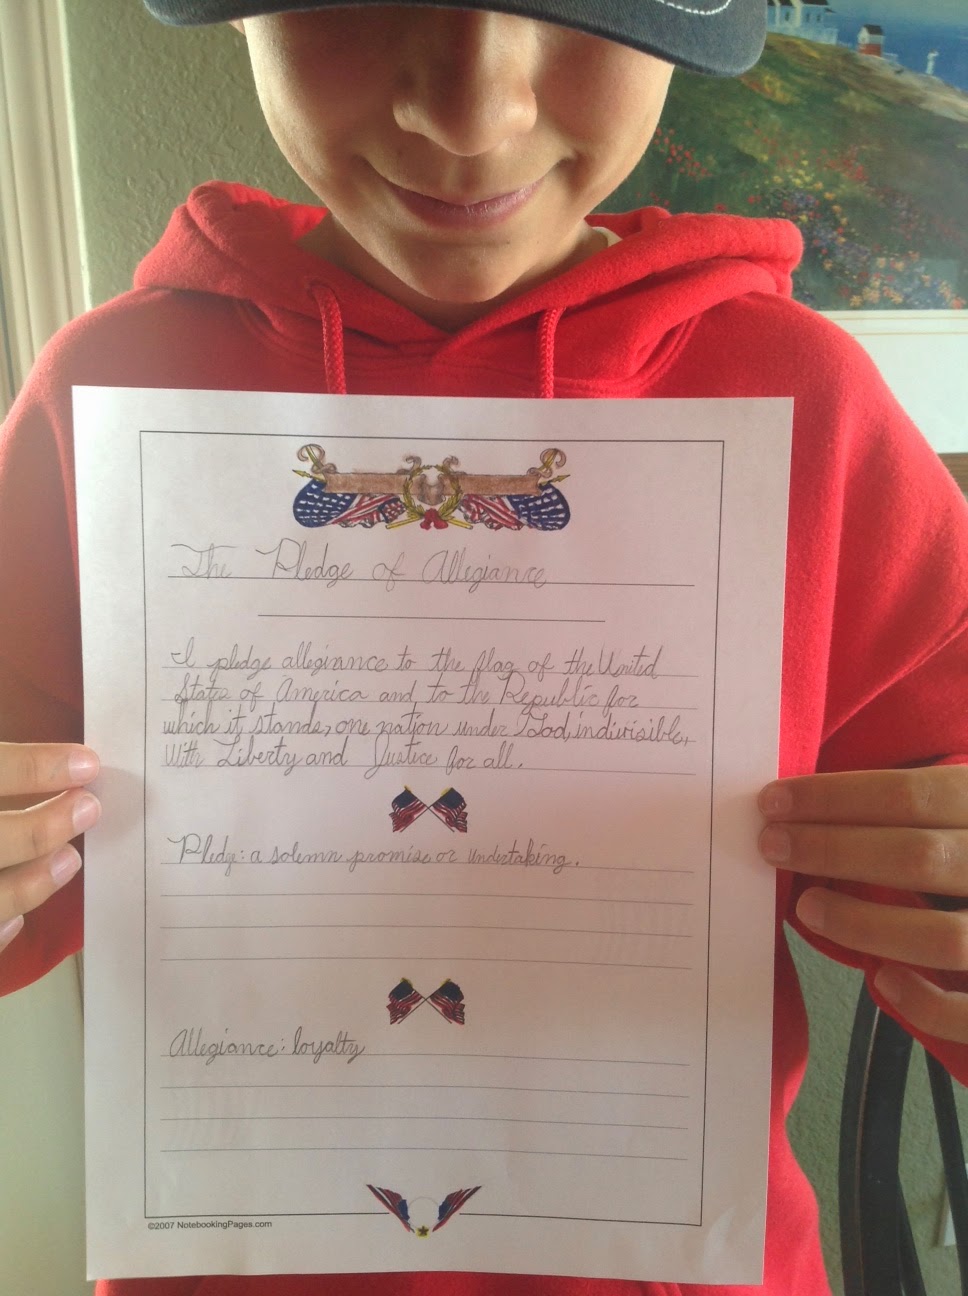 The Pledge of Allegiance
I pledge allegiance to the flag of the United
States of America and to the Republic for
which it stands, one nation under God, indivisible,
With Liberty and Justice for all.
Pledge: a solemn promise or undertaking.
Allegiance: loyalty
©2007 NotebookingPages.com